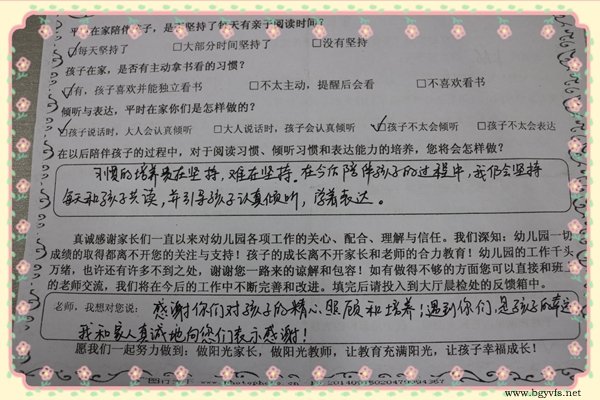 平时在家陪伴孩子,是否坚持了每天有亲子阅读时间?
☑每天坚持了 □大部分时间坚持了 □没有坚持
孩子在家,是否有主动拿书看的习惯?
☑有,孩子喜欢并能独立看书 □不太主动,提醒后会看 □不喜欢看书
倾听与表达,平时在家你们是怎样做的?
☑孩子说话时,大人会认真倾听 □大人说话时,孩子会认真倾听 ☑孩子不太会倾听 □孩子不太会表达
在以后陪伴孩子的过程中,对于阅读习惯、倾听习惯和表达能力的培养,您将会怎样做?
习惯的培养贵在坚持,难在坚持,在今后陪伴孩子的过程中,我仍会坚持
每天和孩子共读,并引导孩子认真倾听,学着表达。
真诚感谢家长们一直以来对幼儿园各项工作的关心、配合、理解与信任。我们深知:幼儿园一切
成绩的取得都离不开您的关注与支持!孩子的成长离不开家长和老师的合力教育!幼儿园的工作千头
万绪,也许还有许多不到之处,谢谢您一路来的谅解和包容!如有做得不够的方面您可以直接和班
的老师交流,我们将在今后的工作中不断完善和改进。填完后请投入到大厅晨检处的反馈箱中。
老师,我想对您说:感谢你们对孩子的精心照顾和培养!遇到你们,是孩子的幸运
我和家人真诚地向您们表示感谢!
愿我们一起努力做到:做阳光家长,做阳光教师,让教育充满阳光,让孩子幸福成长!
www.bgyvfs.net